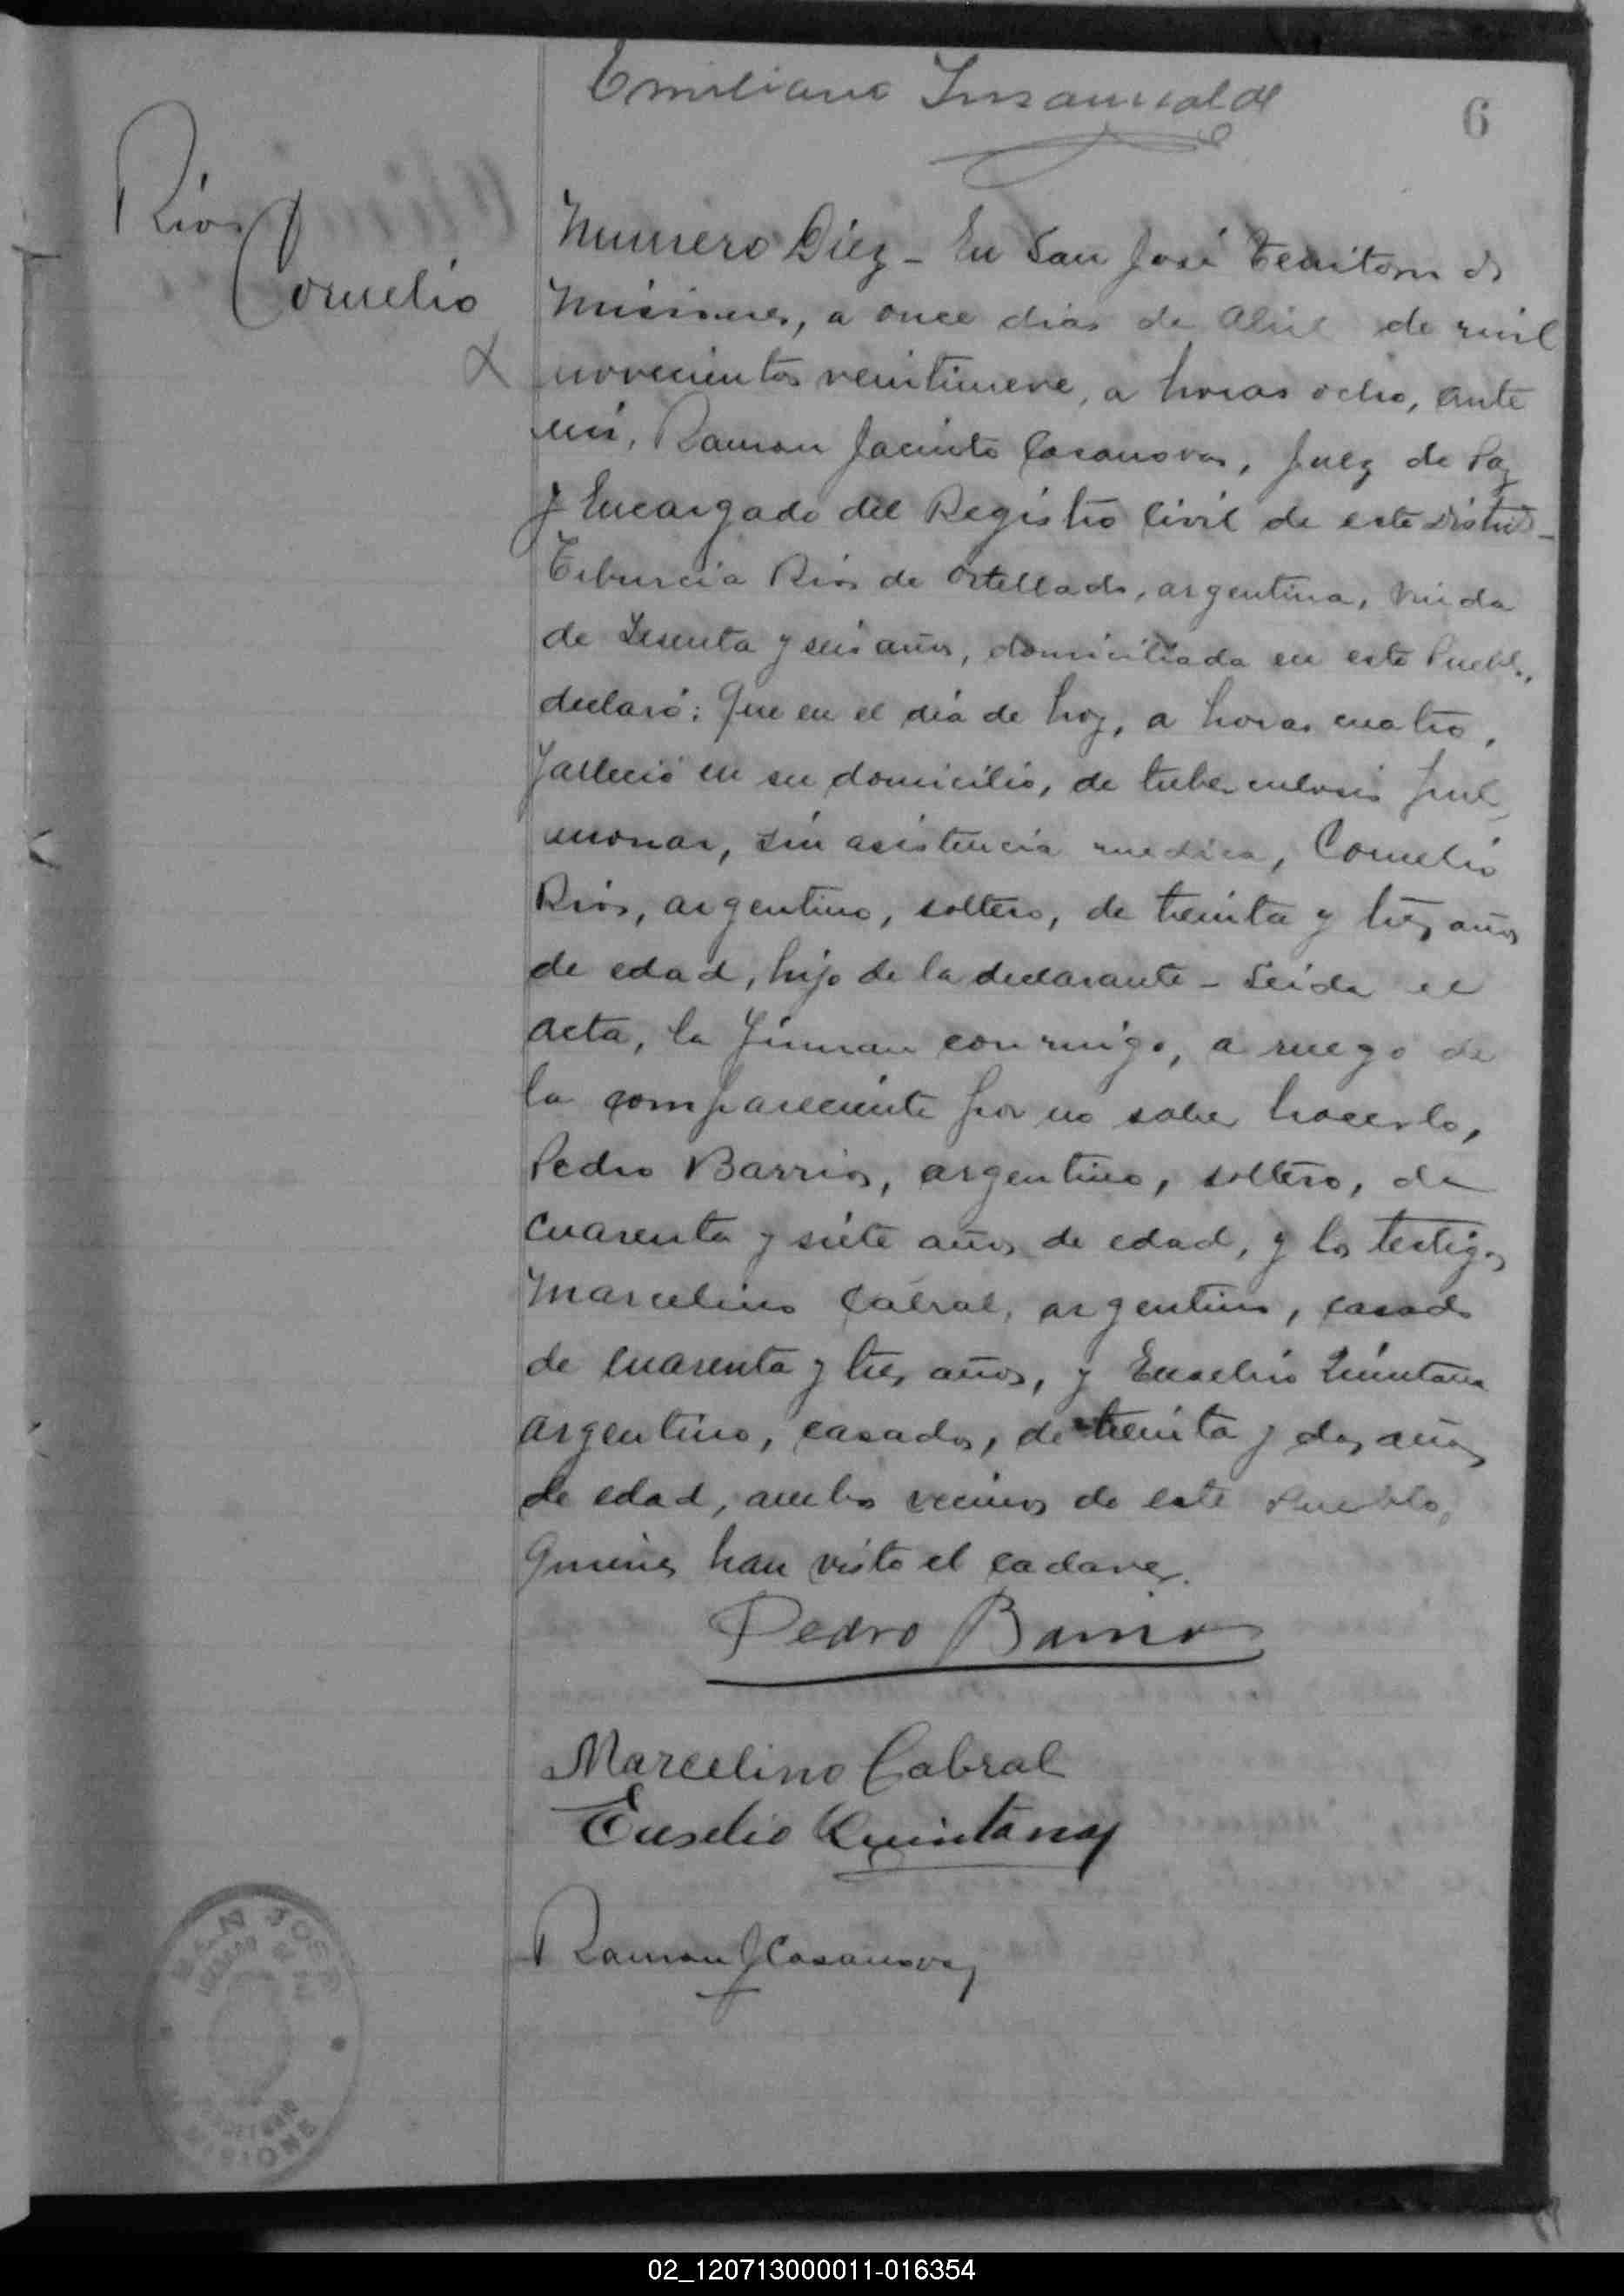 Emiliano Insaurralde
6
Rios
Cornelio
Numero Diez - En San José Territorio de
Misiones, a once dias de Abril de mil
novecientos veintinueve, a horas ocho, ante
mi, Ramon Jacinto Casanova, Juez de Paz
y Encargado del Registro Civil de este Distrito -
Tiburcia Rios de Ortellado, argentina, viuda
de sesenta y seis años, domiciliada en este Pueblo,
declaró: Que en el dia de hoy, a horas cuatro,
falleció en su domicilio, de tuberculosis pul
monar, sin asistencia medica, Cornelio
Rios, argentino, soltero, de treinta y tres años
de edad, hijo de la declarante - Leida el
acta, la firman conmigo, a ruego de
la compareciente por no saber hacerlo,
Pedro Barrios, argentino, soltero, de
cuarenta y siete años de edad, y los testigos
Marcelino Cabral, argentino, casado
de cuarenta y tres años, y Eusebio Quintana
argentino, casados, de treinta y dos años
de edad, ambos vecinos de este Pueblo,
quienes han visto el cadaver.
Pedro Barrios
Marcelino Cabral
Eusebio Quintana
Ramon J Casanova
SAN JOSE
MISIONES
02_120713000011-016354